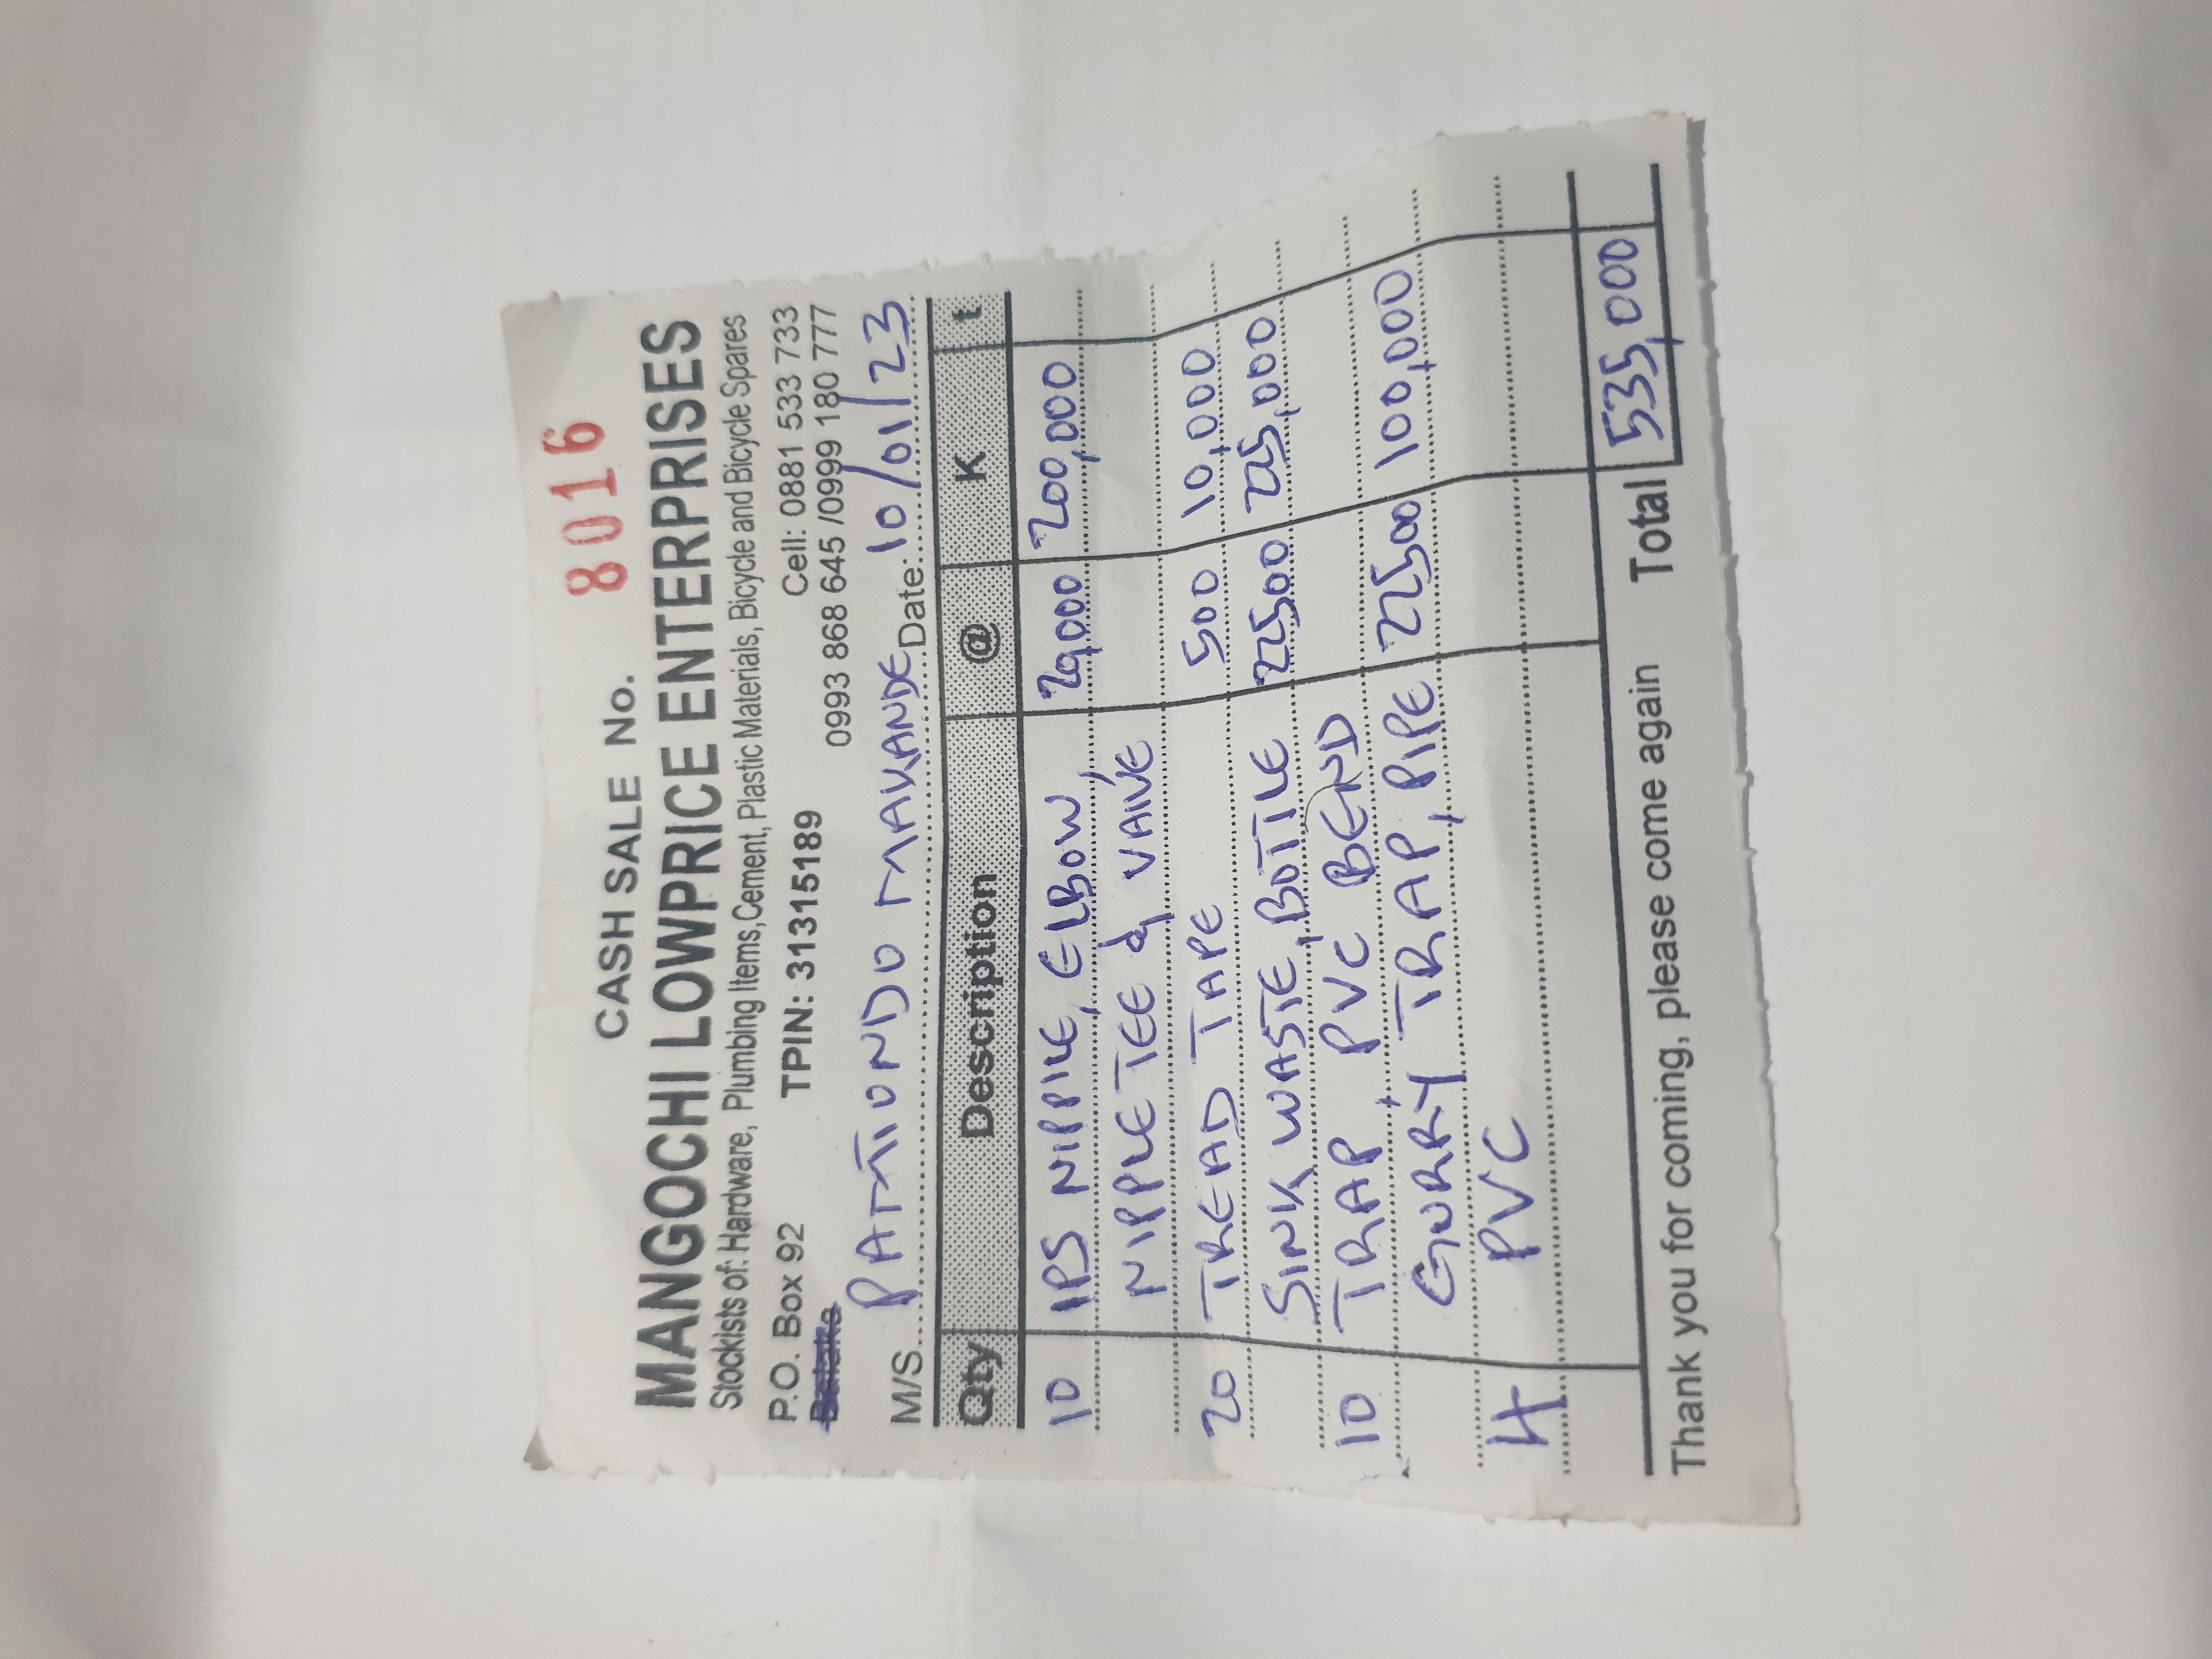 CASH SALE No. 8016
MANGOCHI LOWPRICE ENTERPRISES
Stockists of: Hardware, Plumbing Items, Cement, Plastic Materials, Bicycle and Bicycle Spares
P.O. Box 92 TPIN: 31315189 Cell: 0881 533 733
0993 868 645 /0999 180 777
M/S. PATMTIONDO MAKANDE Date: 10/01/23
Qty Description @ K t
10 IPS NIPPLE, ELBOW, 20,000 200,000
NIPPLE TEE & VALVE
20 TREAD TAPE 500 10,000
SINK WASTE, BOTTLE 22500 225,000
10 TRAP, PVC BEND
GURRY TRAP, PIPE 22500 100,000
4 PVC
Total 535,000
Thank you for coming, please come again